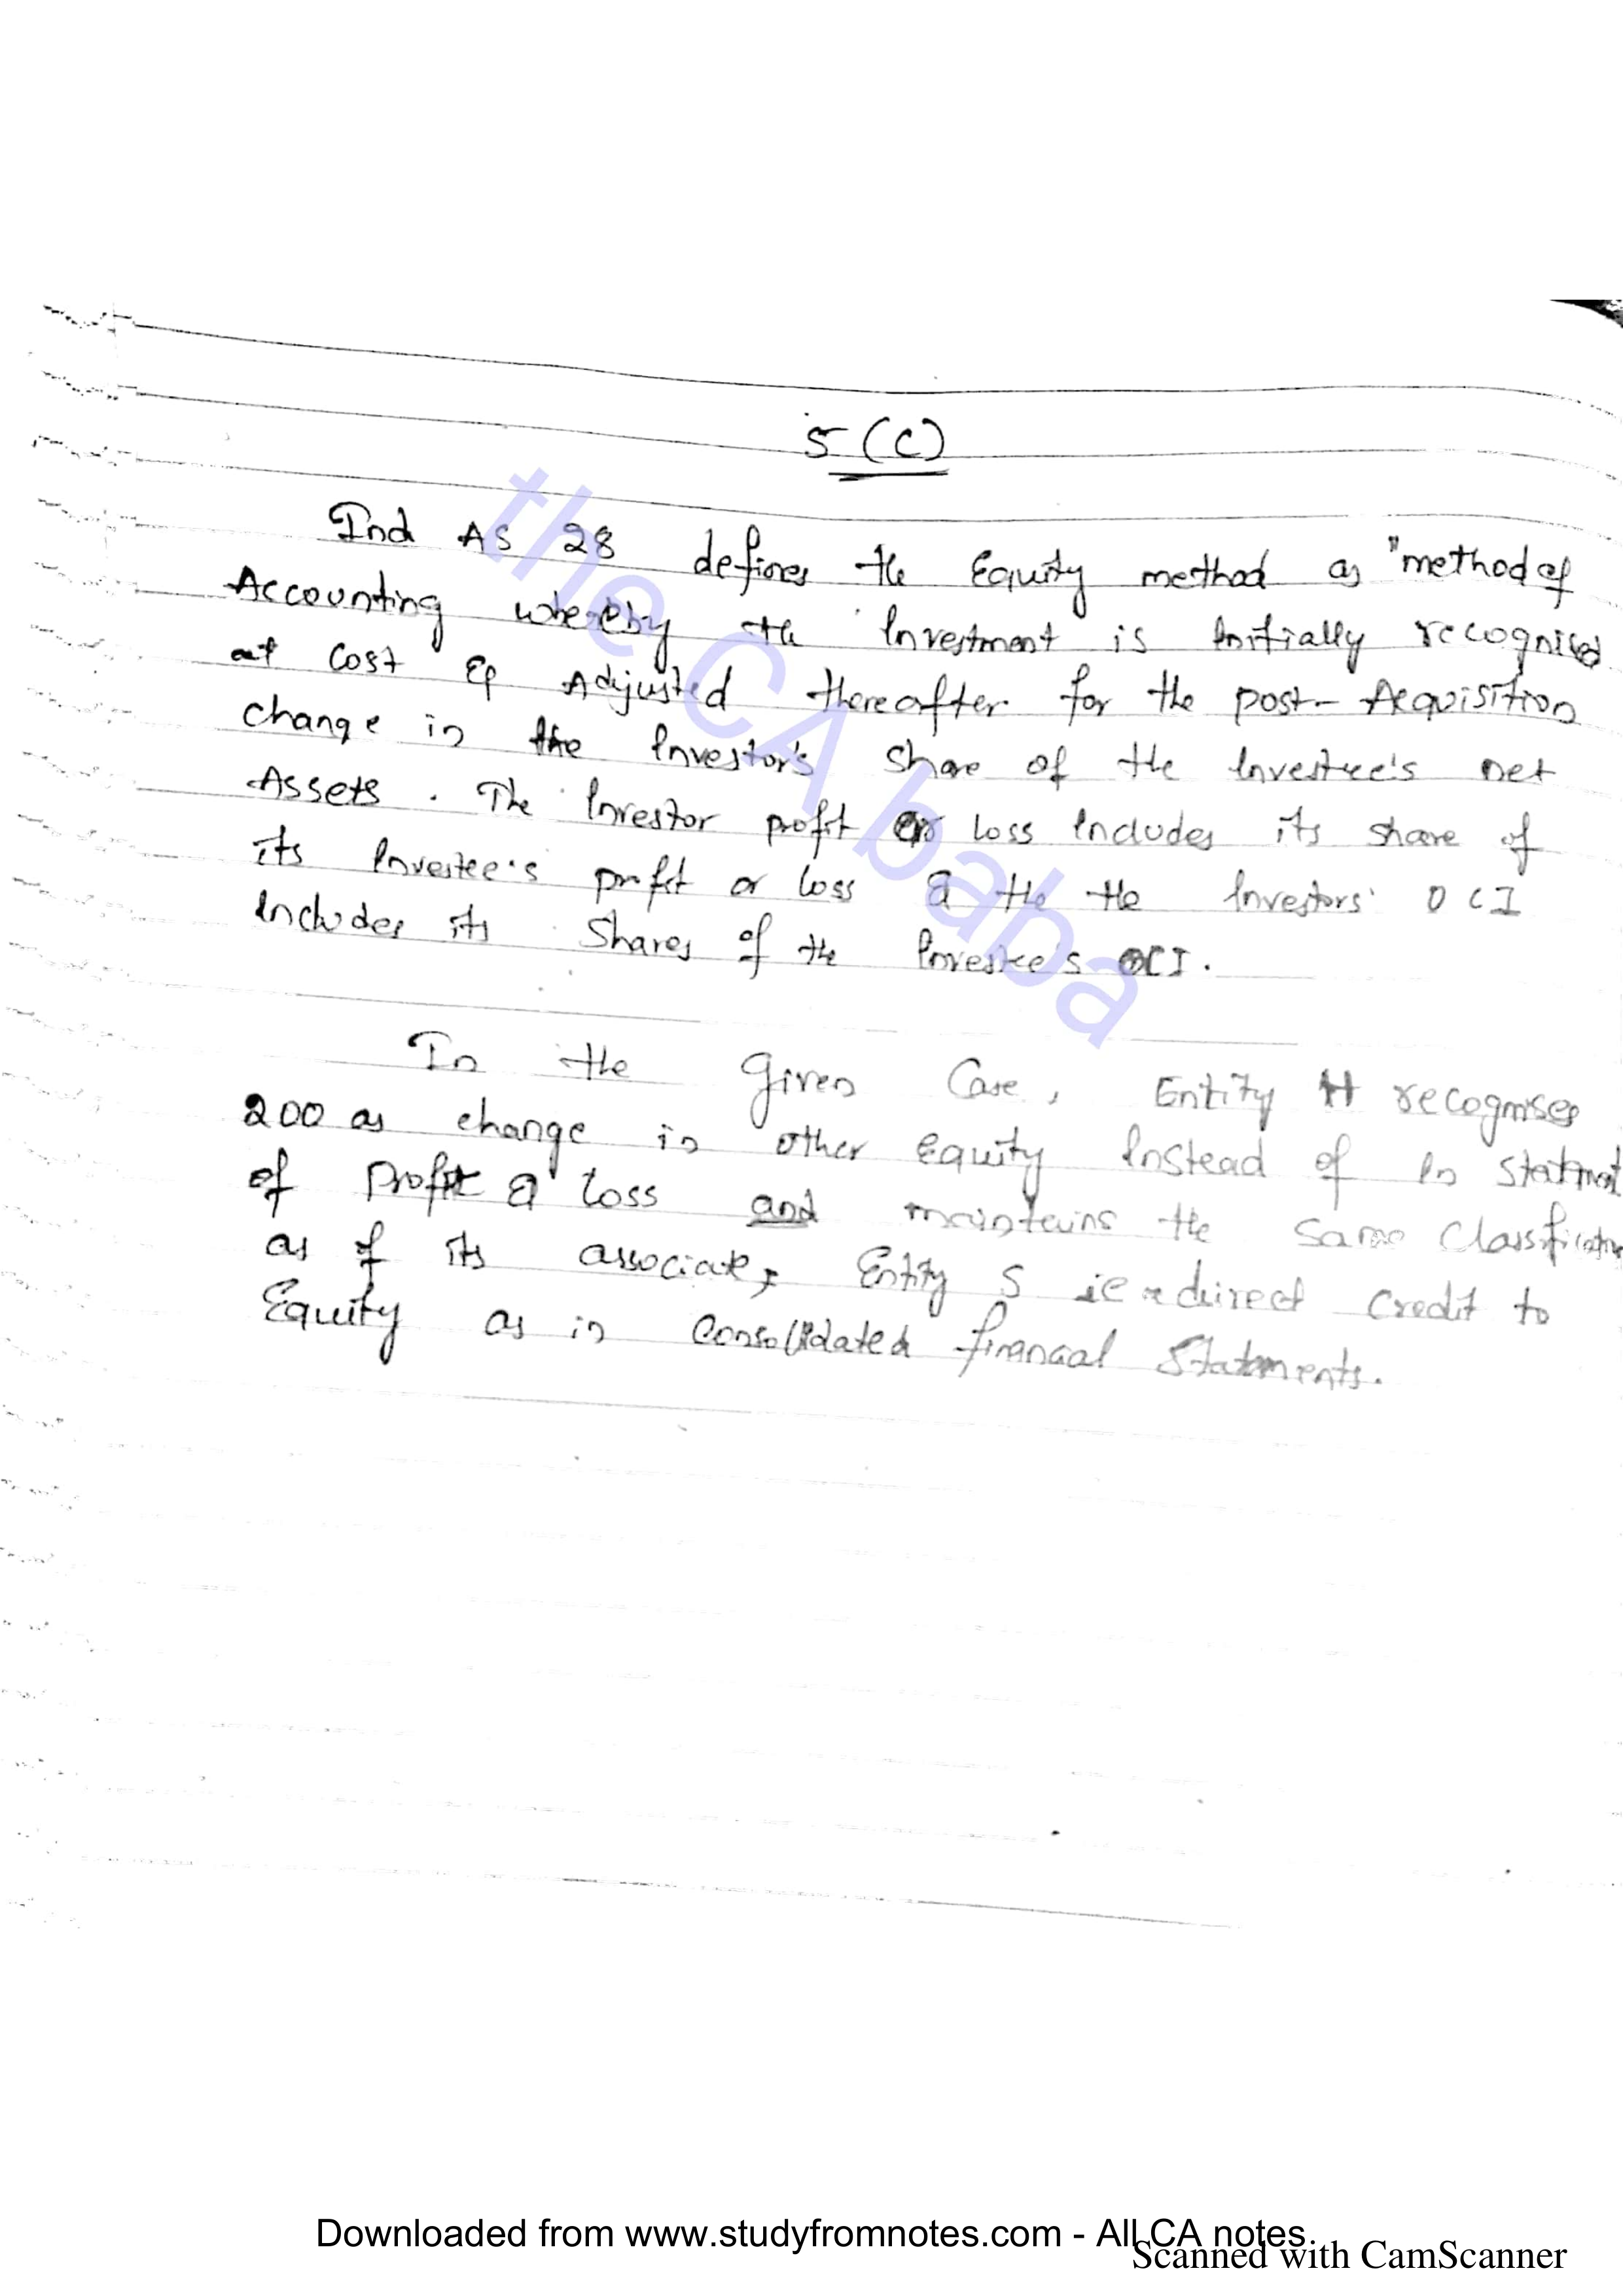 5 (C)
Ind AS 28 defines the Equity method as "method of
Accounting whereby the Investment is Initially recognised
at cost & Adjusted thereafter for the post-Acquisition
change in the Investor's share of the Investee's net
Assets. The Investor profit or loss Includes its share of
its Investee's profit or loss & the the Investors' OCI
Includes its Shares of the Investee's OCI.
In the given Case, Entity H recognises
200 as change in other equity Instead of In statment
of Profit & loss and maintains the same Classification
as of its associate, Entity S ie a direct credit to
Equity as in Consolidated financial Statements.
the CA baba
Downloaded from www.studyfromnotes.com - All CA notes
Scanned with CamScanner